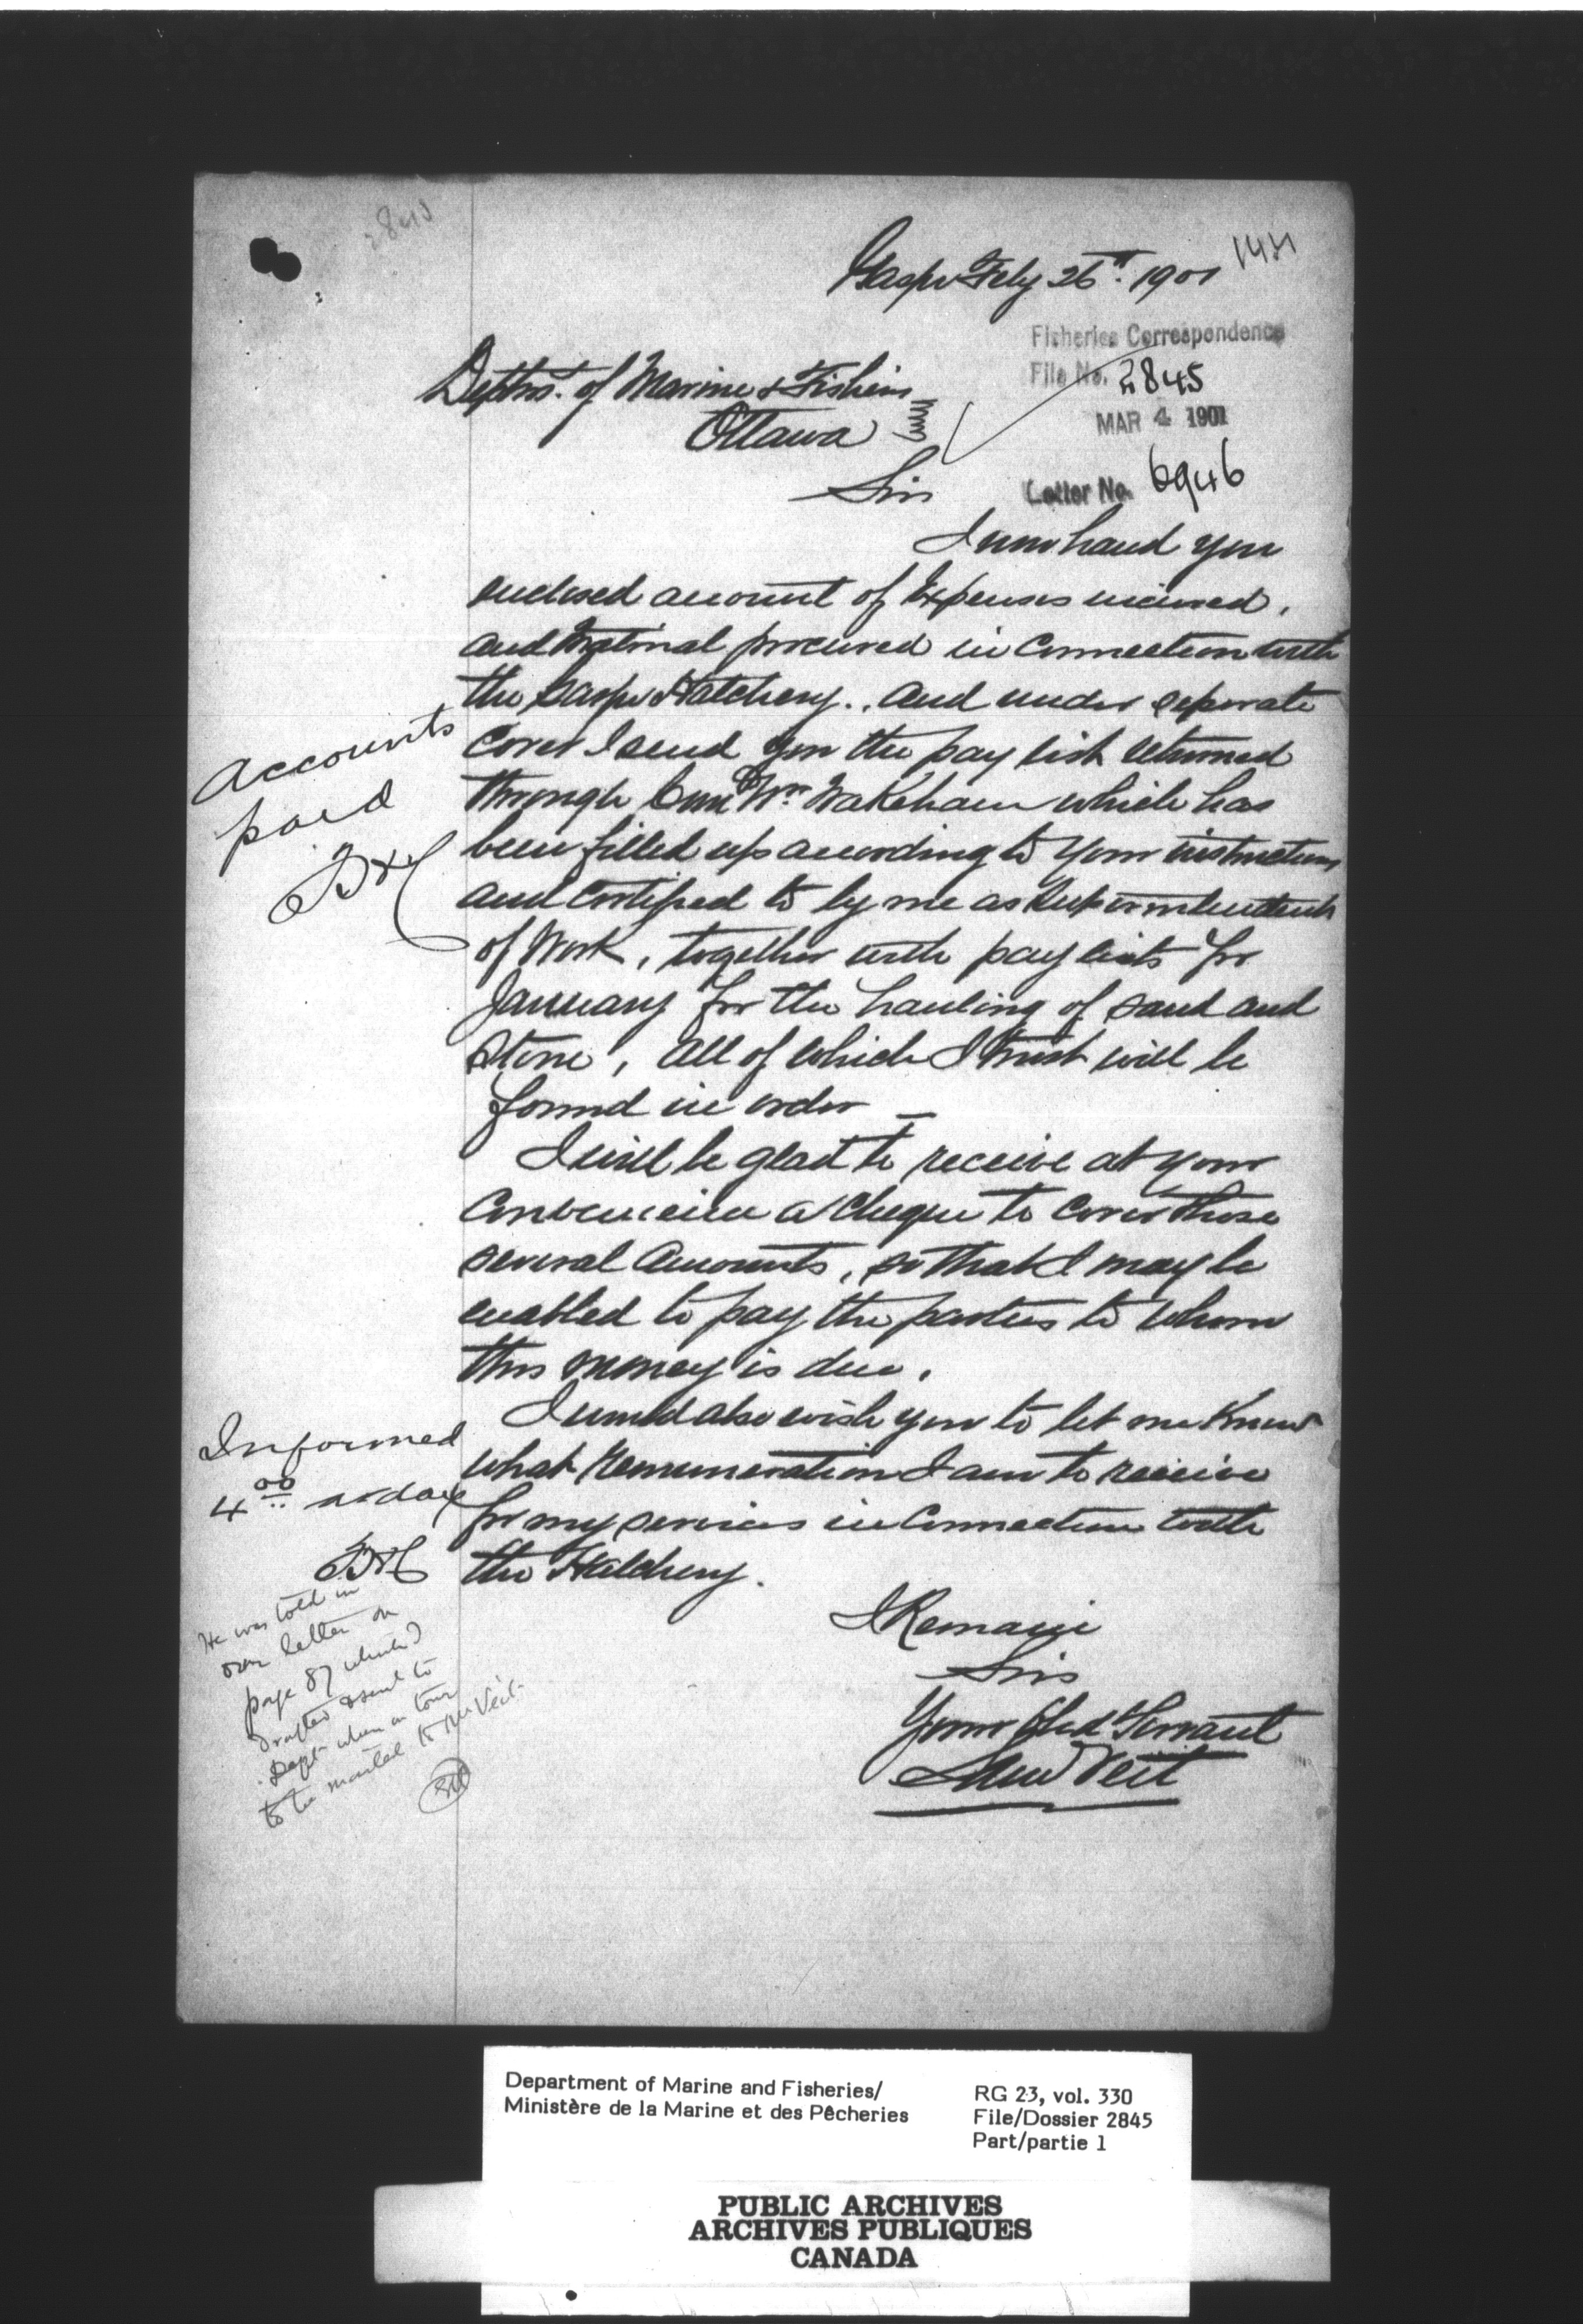 2845
1421
Gaspe Feby 26th. 1901
Fisheries Correspondence
File No. 2845
MAR 4 1901
Letter No. 6946
Deptms. of Marine & Fisheries
Ottawa
Sir
I now hand you
enclosed account of Expenses incurred,
and Material procured in Connection with
the Gaspe Hatchery., and under seperate
Cover I send you the pay list returned
through Com Wm. Wakeham which has
been filled up according to your instructions
and Certified to by me as Superintendent
of Work, together with pay lists for
January for the hauling of sand and
Stone, all of which I trust will be
found in order —
I will be glad to receive at your
Convenience a Cheque to Cover these
several Amounts, so that I may be
enabled to pay the parties to whom
this money is due.
I would also wish you to let me Know
what Remuneration I am to receive
for my services in Connection with
the Hatchery.
I Remain
Sir
Your Obed Servant
Veit
Accounts
paid
Informed
4 00 a day
He was told in
our letter on
page 87 which I
drafted & sent to
when on tour
to be mailed to Mr Veit
Department of Marine and Fisheries/
Ministère de la Marine et des Pêcheries
RG 23, vol. 330
File/Dossier 2845
Part/partie 1
PUBLIC ARCHIVES
ARCHIVES PUBLIQUES
CANADA